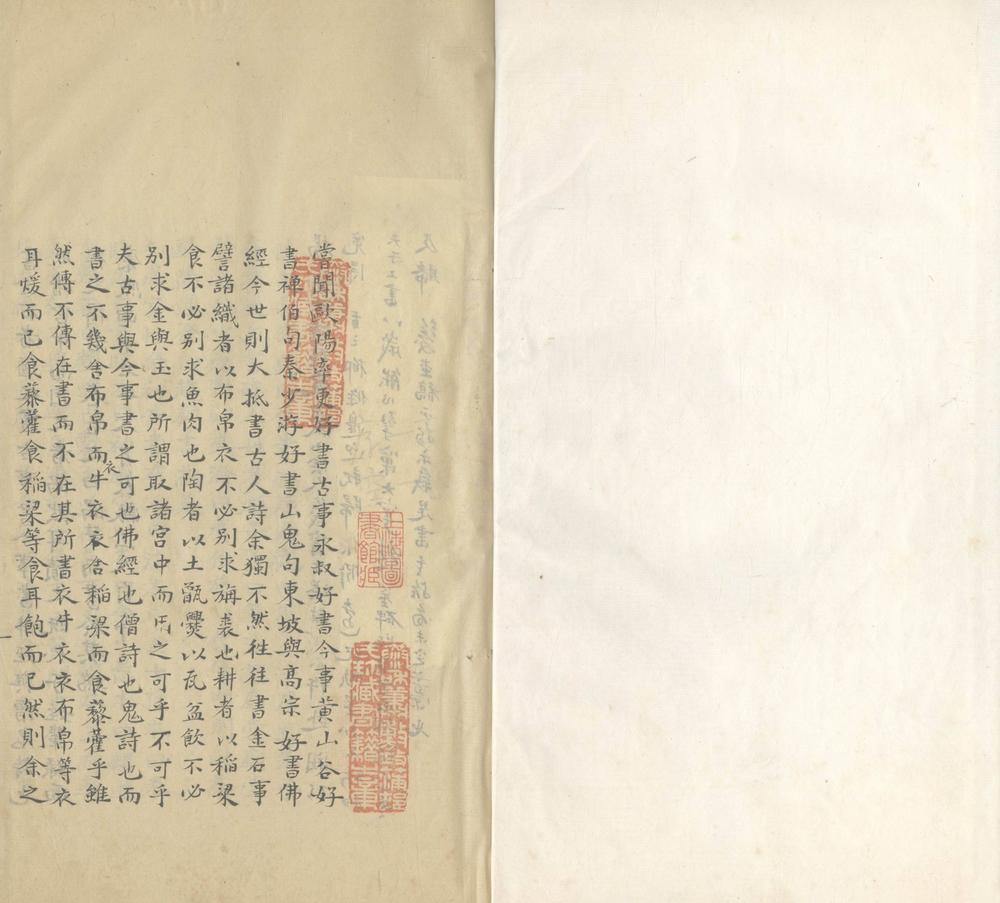 嘗聞歐陽率更好書古事永叔好書今事黄山谷好
書禅伯句秦少游好書山鬼句東坡與高宗好書佛
經今世則大抵書古人詩余獨不然徃徃書金石事
譬諸織者以布帛衣不必別求旃裘也耕者以稲梁
食不必別求魚肉也陶者以土甑㸑以瓦盆飲不必
別求金與玉也所謂取諸宮中而用之可乎不可乎
夫古事與今事書之可也佛經也僧詩也鬼詩也而
書之不幾舎布帛而衣牛衣舎稲梁而食藜藿乎雖
然傳不傳在書而不在其所書衣牛衣衣布帛等衣
耳煖而已食藜藿食稲梁等食耳飽而已然則余之
上海圖
書館臧